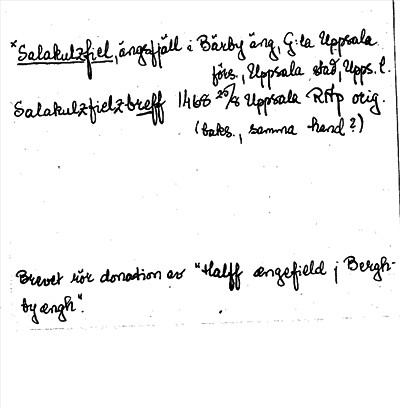 *Salakulzfiel, ängsfjäll i Bärby äng, G:la Uppsala
förs., Uppsala stad, Upps. l.
Salakulzfielzbreff 1468 25/8 Uppsala RAp orig.
(baks., samma hand?)
Brevet rör donation av "Halff ængefield j Bergh-
by ængh".